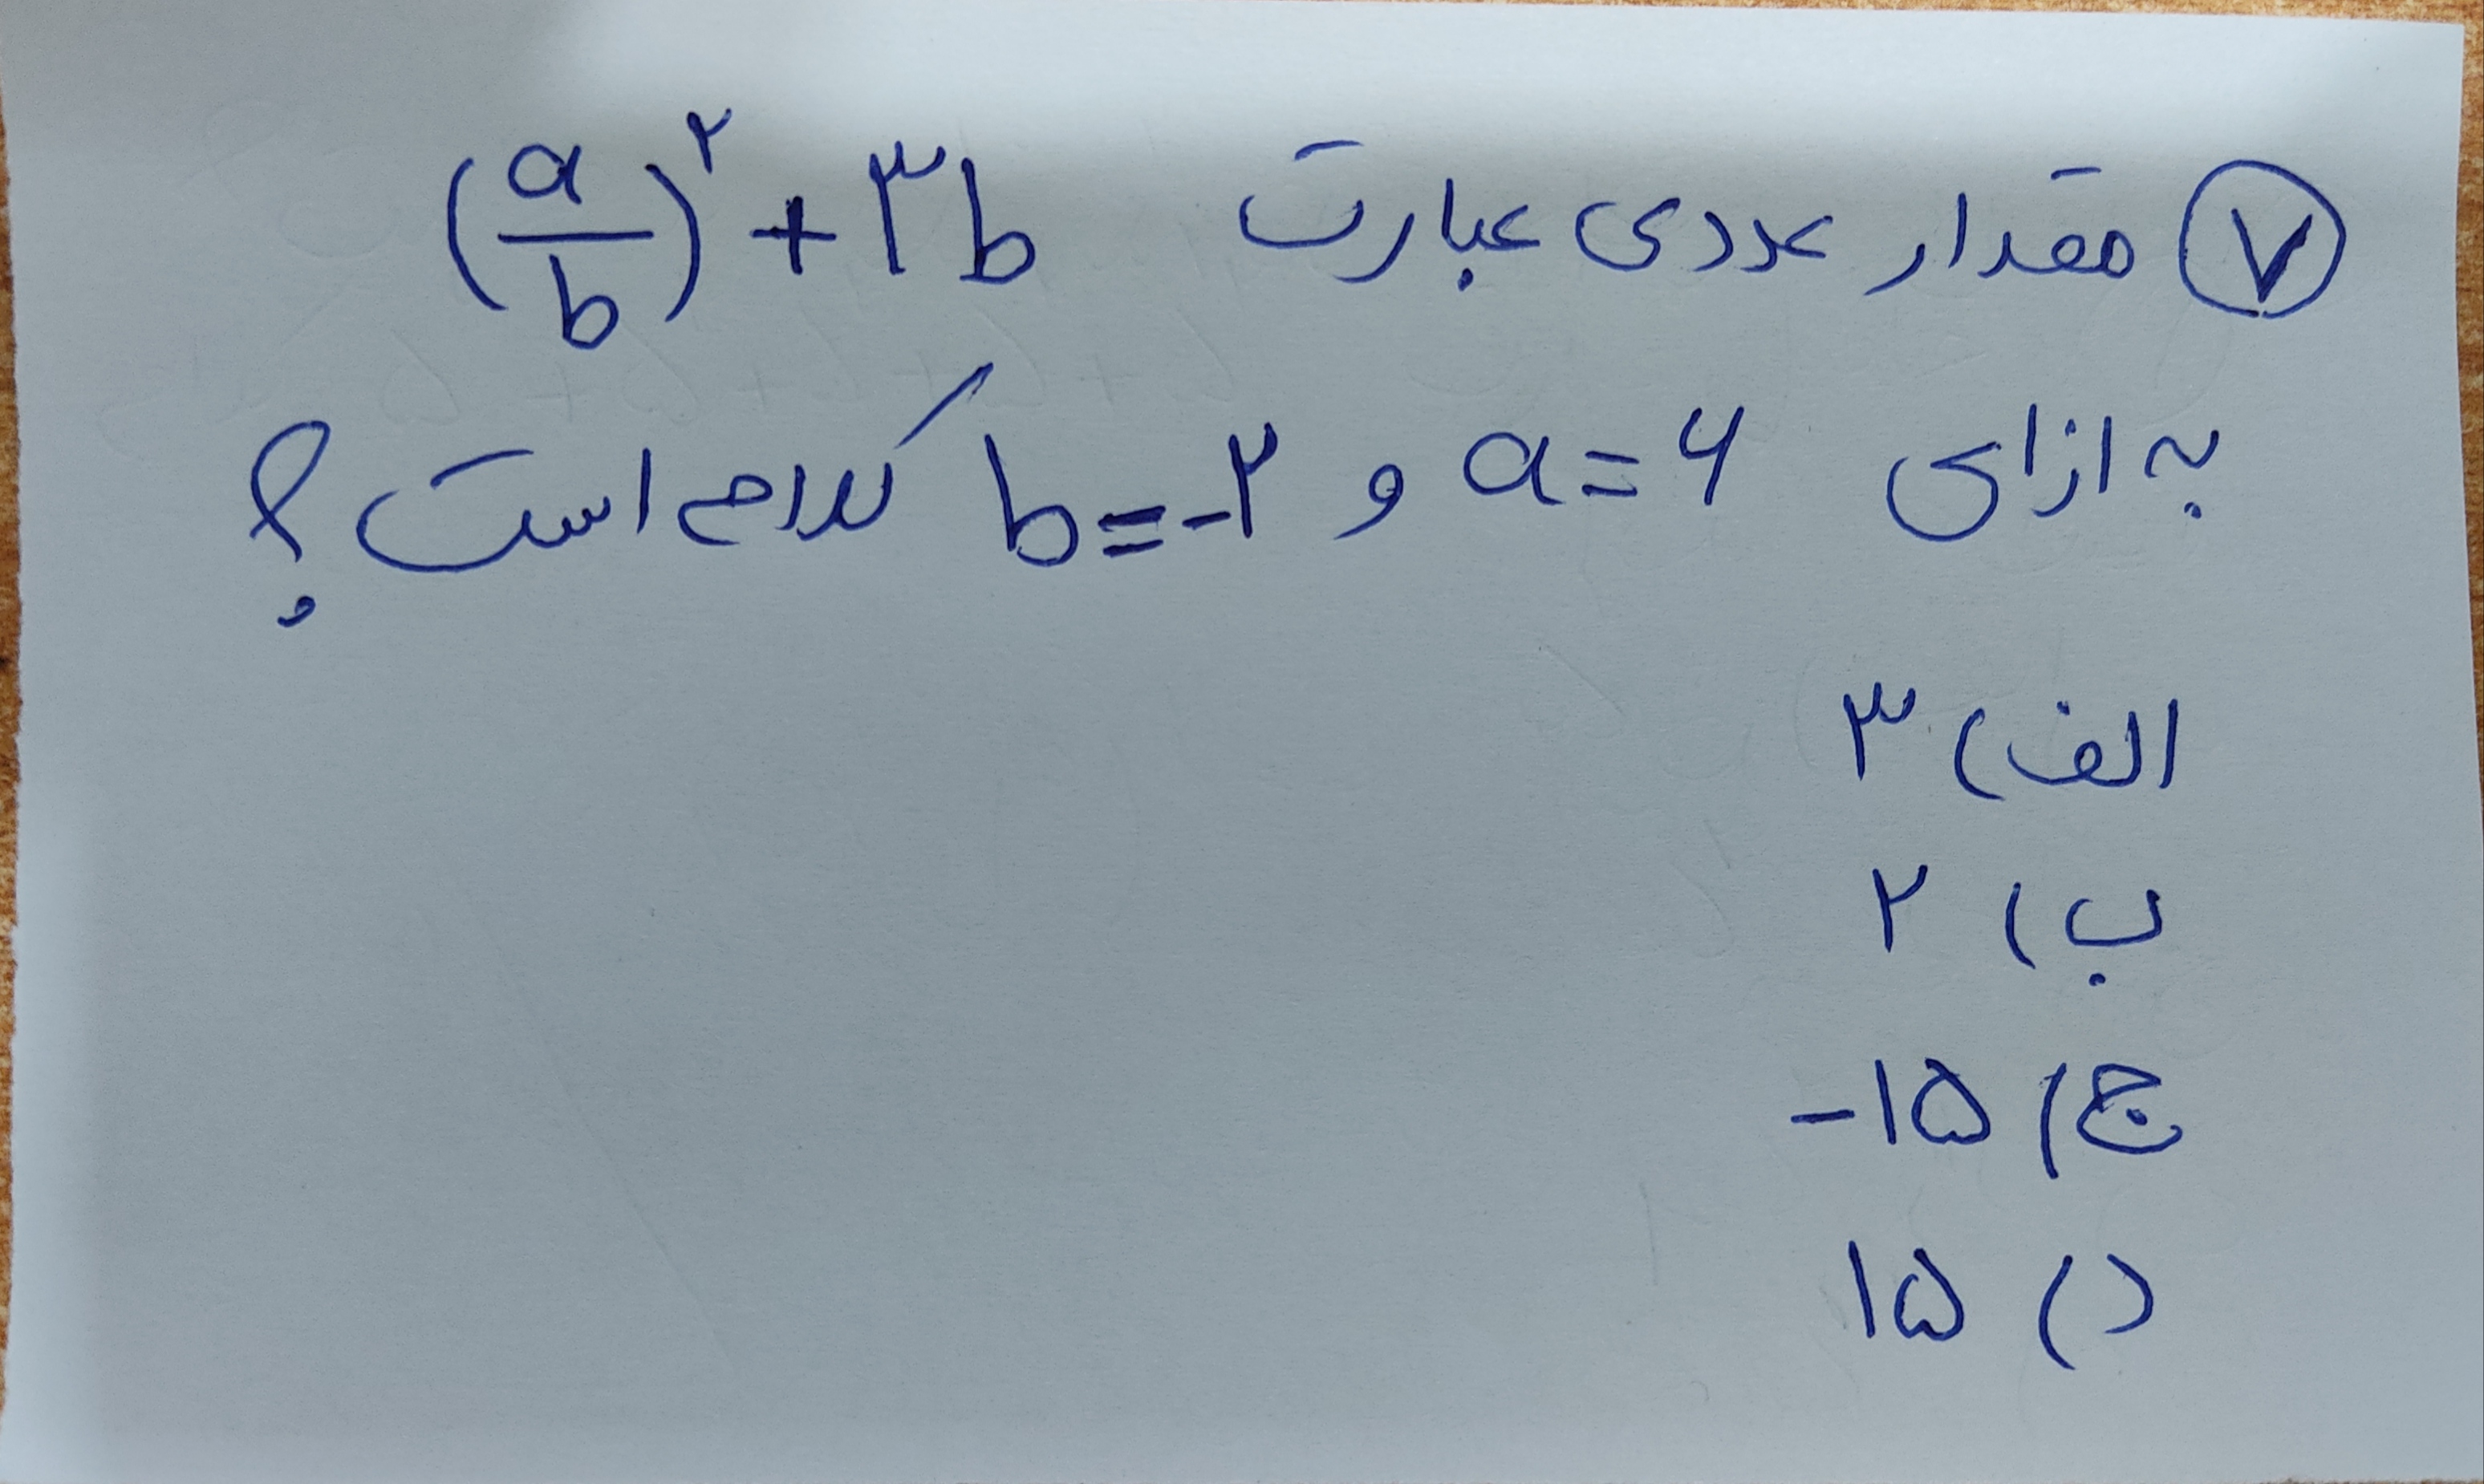 ۷ مقدار عددی عبارت (a/b)^۲ + ۳b
به ازای a=۶ و b=-۲ کدام است؟
الف) ۳
ب) ۲
ج) -۱۵
د) ۱۵